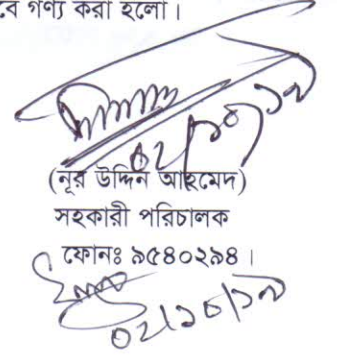 বে গণ্য করা হলো।
০২/১০/১৭
(নূর উদ্দিন আহমেদ)
সহকারী পরিচালক
ফোনঃ ৯৫৪০২৯৪।
০২/১০/১৭